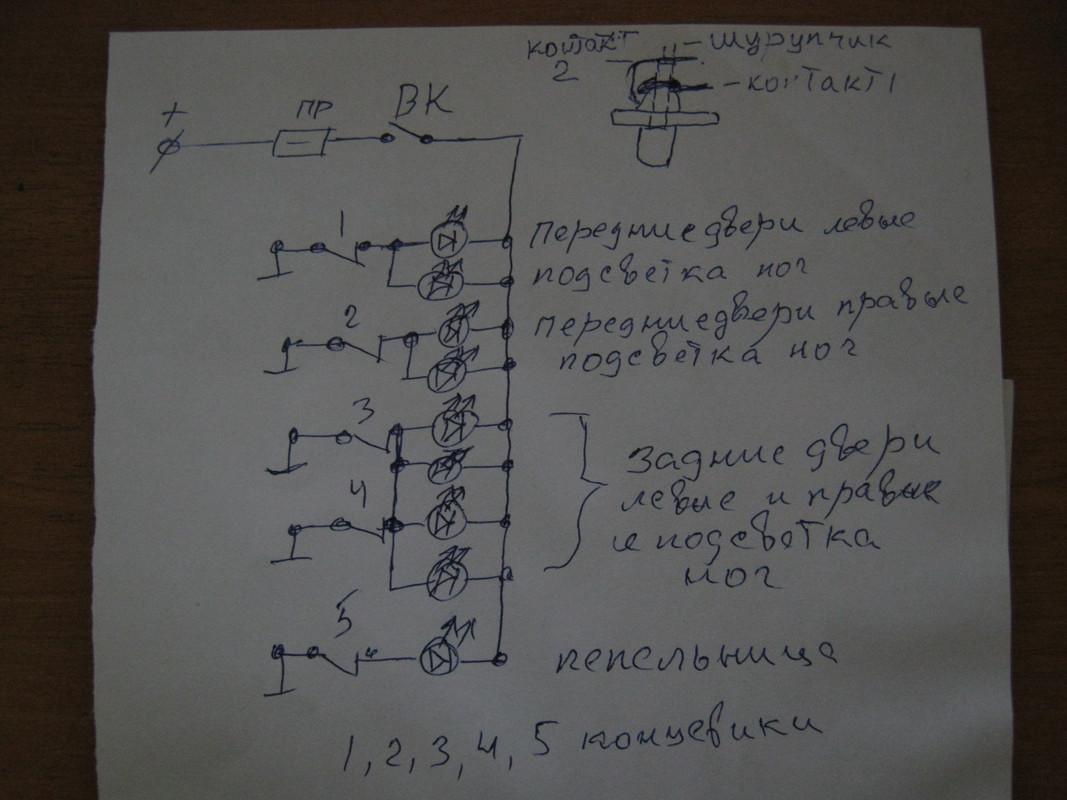 контакт
2
- шурупчик
- контакт 1
+
ПР
ВК
1
Передние двери левые
подсветка ног
2
Передние двери правые
подсветка ног
3
Задние двери
левые и правые
и подсветка
ног
4
5
пепельница
1, 2, 3, 4, 5 концевики